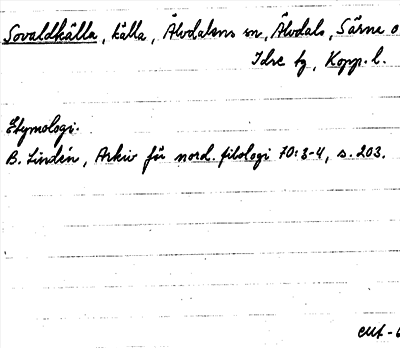 Sovaldkälla, källa, Älvdalens sn, Älvdals, Särna o
Idre tg, Kopp. l.
Etymologi.
B. Lindén, Arkiv för nord. filologi 70:3-4, s. 203.